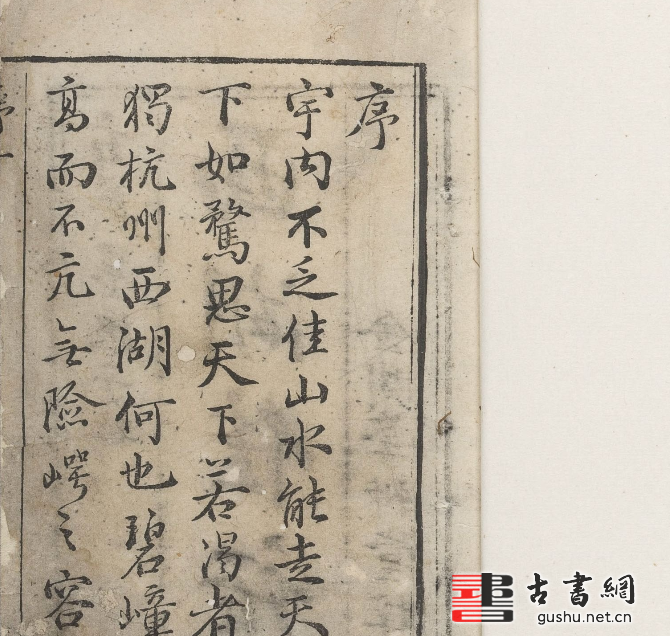 序
宇内不乏佳山水能走天
下如鶩思天下若渴者
獨杭州西湖何也碧嶂
高而不亢無險崿之容
序一
古書網
gushu.net.cn